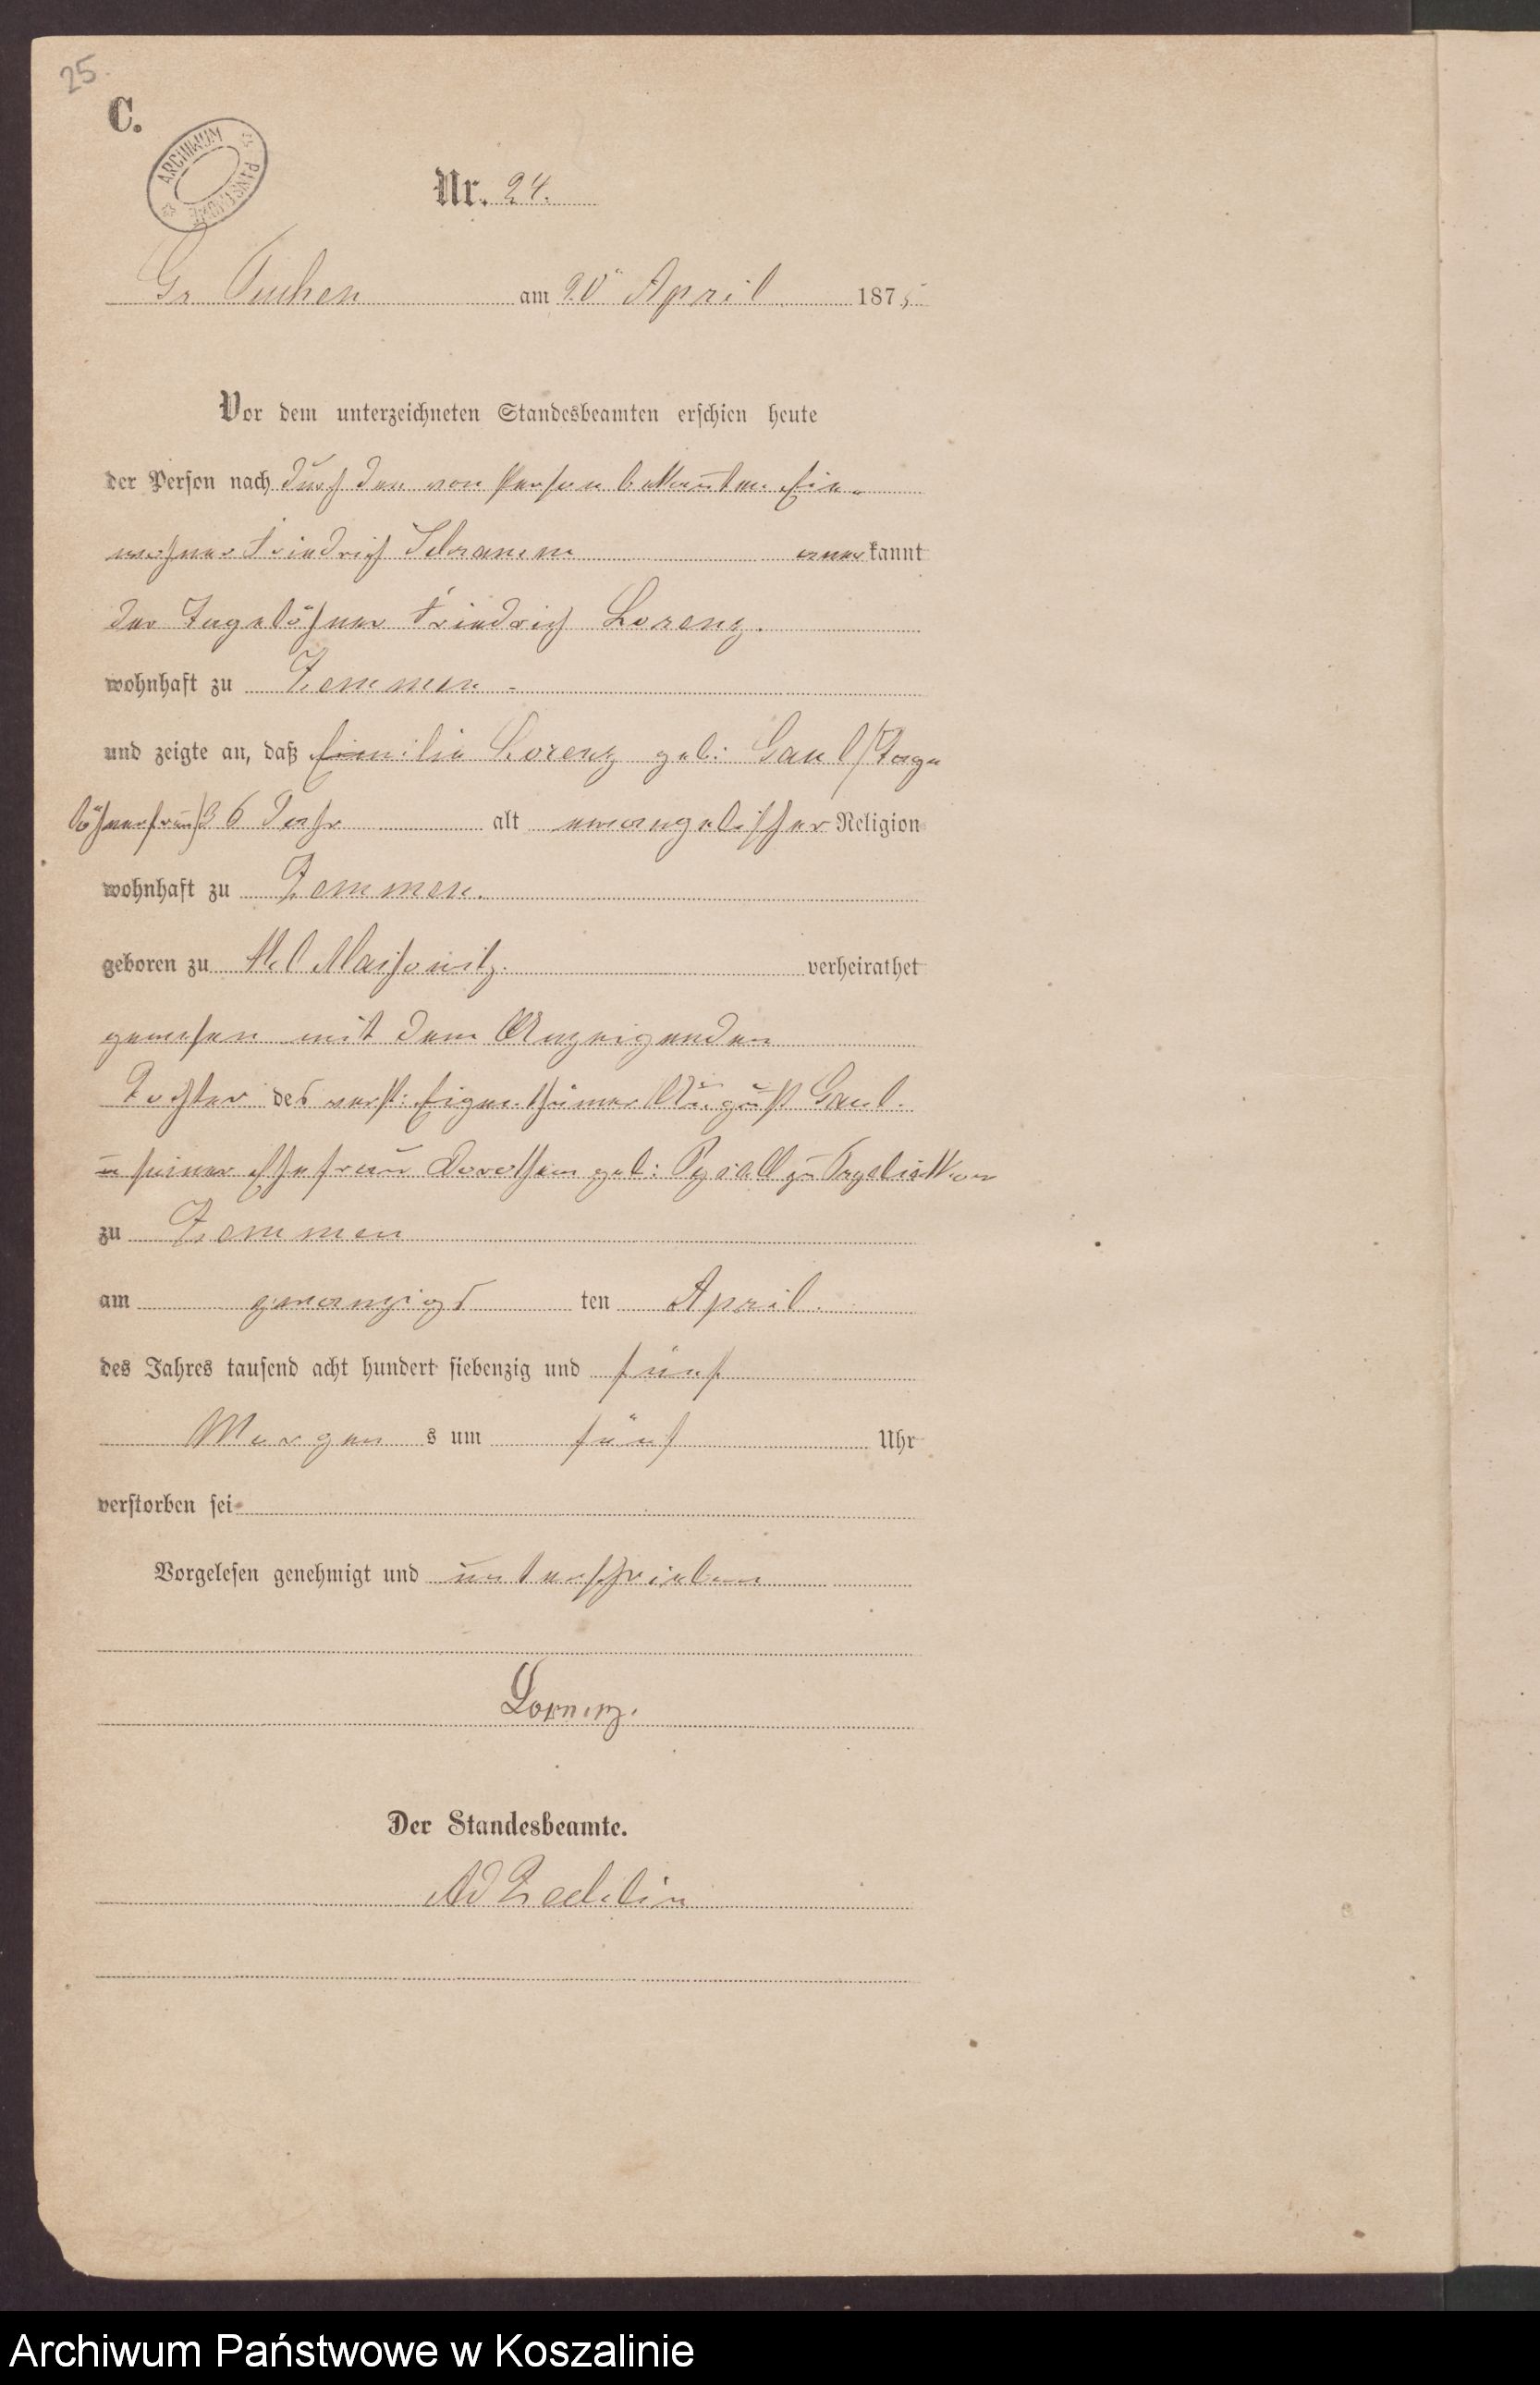 25.
C.
ARCHIWUM PAŃSTWOWE
Nr. 24.
Gr Tuchen am 20t April 1875
Vor dem unterzeichneten Standesbeamten erschien heute
der Person nach durch den von Person bekannten Ein-
wohner Friedrich Schramm anerkannt
der Tagelöhner Friedrich Lorenz.
wohnhaft zu Zemmen
und zeigte an, daß Emilie Lorenz geb: Gaul (Tage
löhnerfrau) 36 Jahr alt evangelischer Religion
wohnhaft zu Zemmen.
geboren zu Kl verheirathet
gewesen mit dem Anzeigenden
Tochter des verst: Eigenthümer August Gaul.
u seiner Ehefrau Dorothea geb: zu
zu Zemmen
am zwanzigs ten April.
des Jahres tausend acht hundert siebenzig und fünf
Morgen s um fünf Uhr
verstorben sei
Vorgelesen genehmigt und unterschrieben
Lorenz.
Der Standesbeamte.
Archiwum Państwowe w Koszalinie